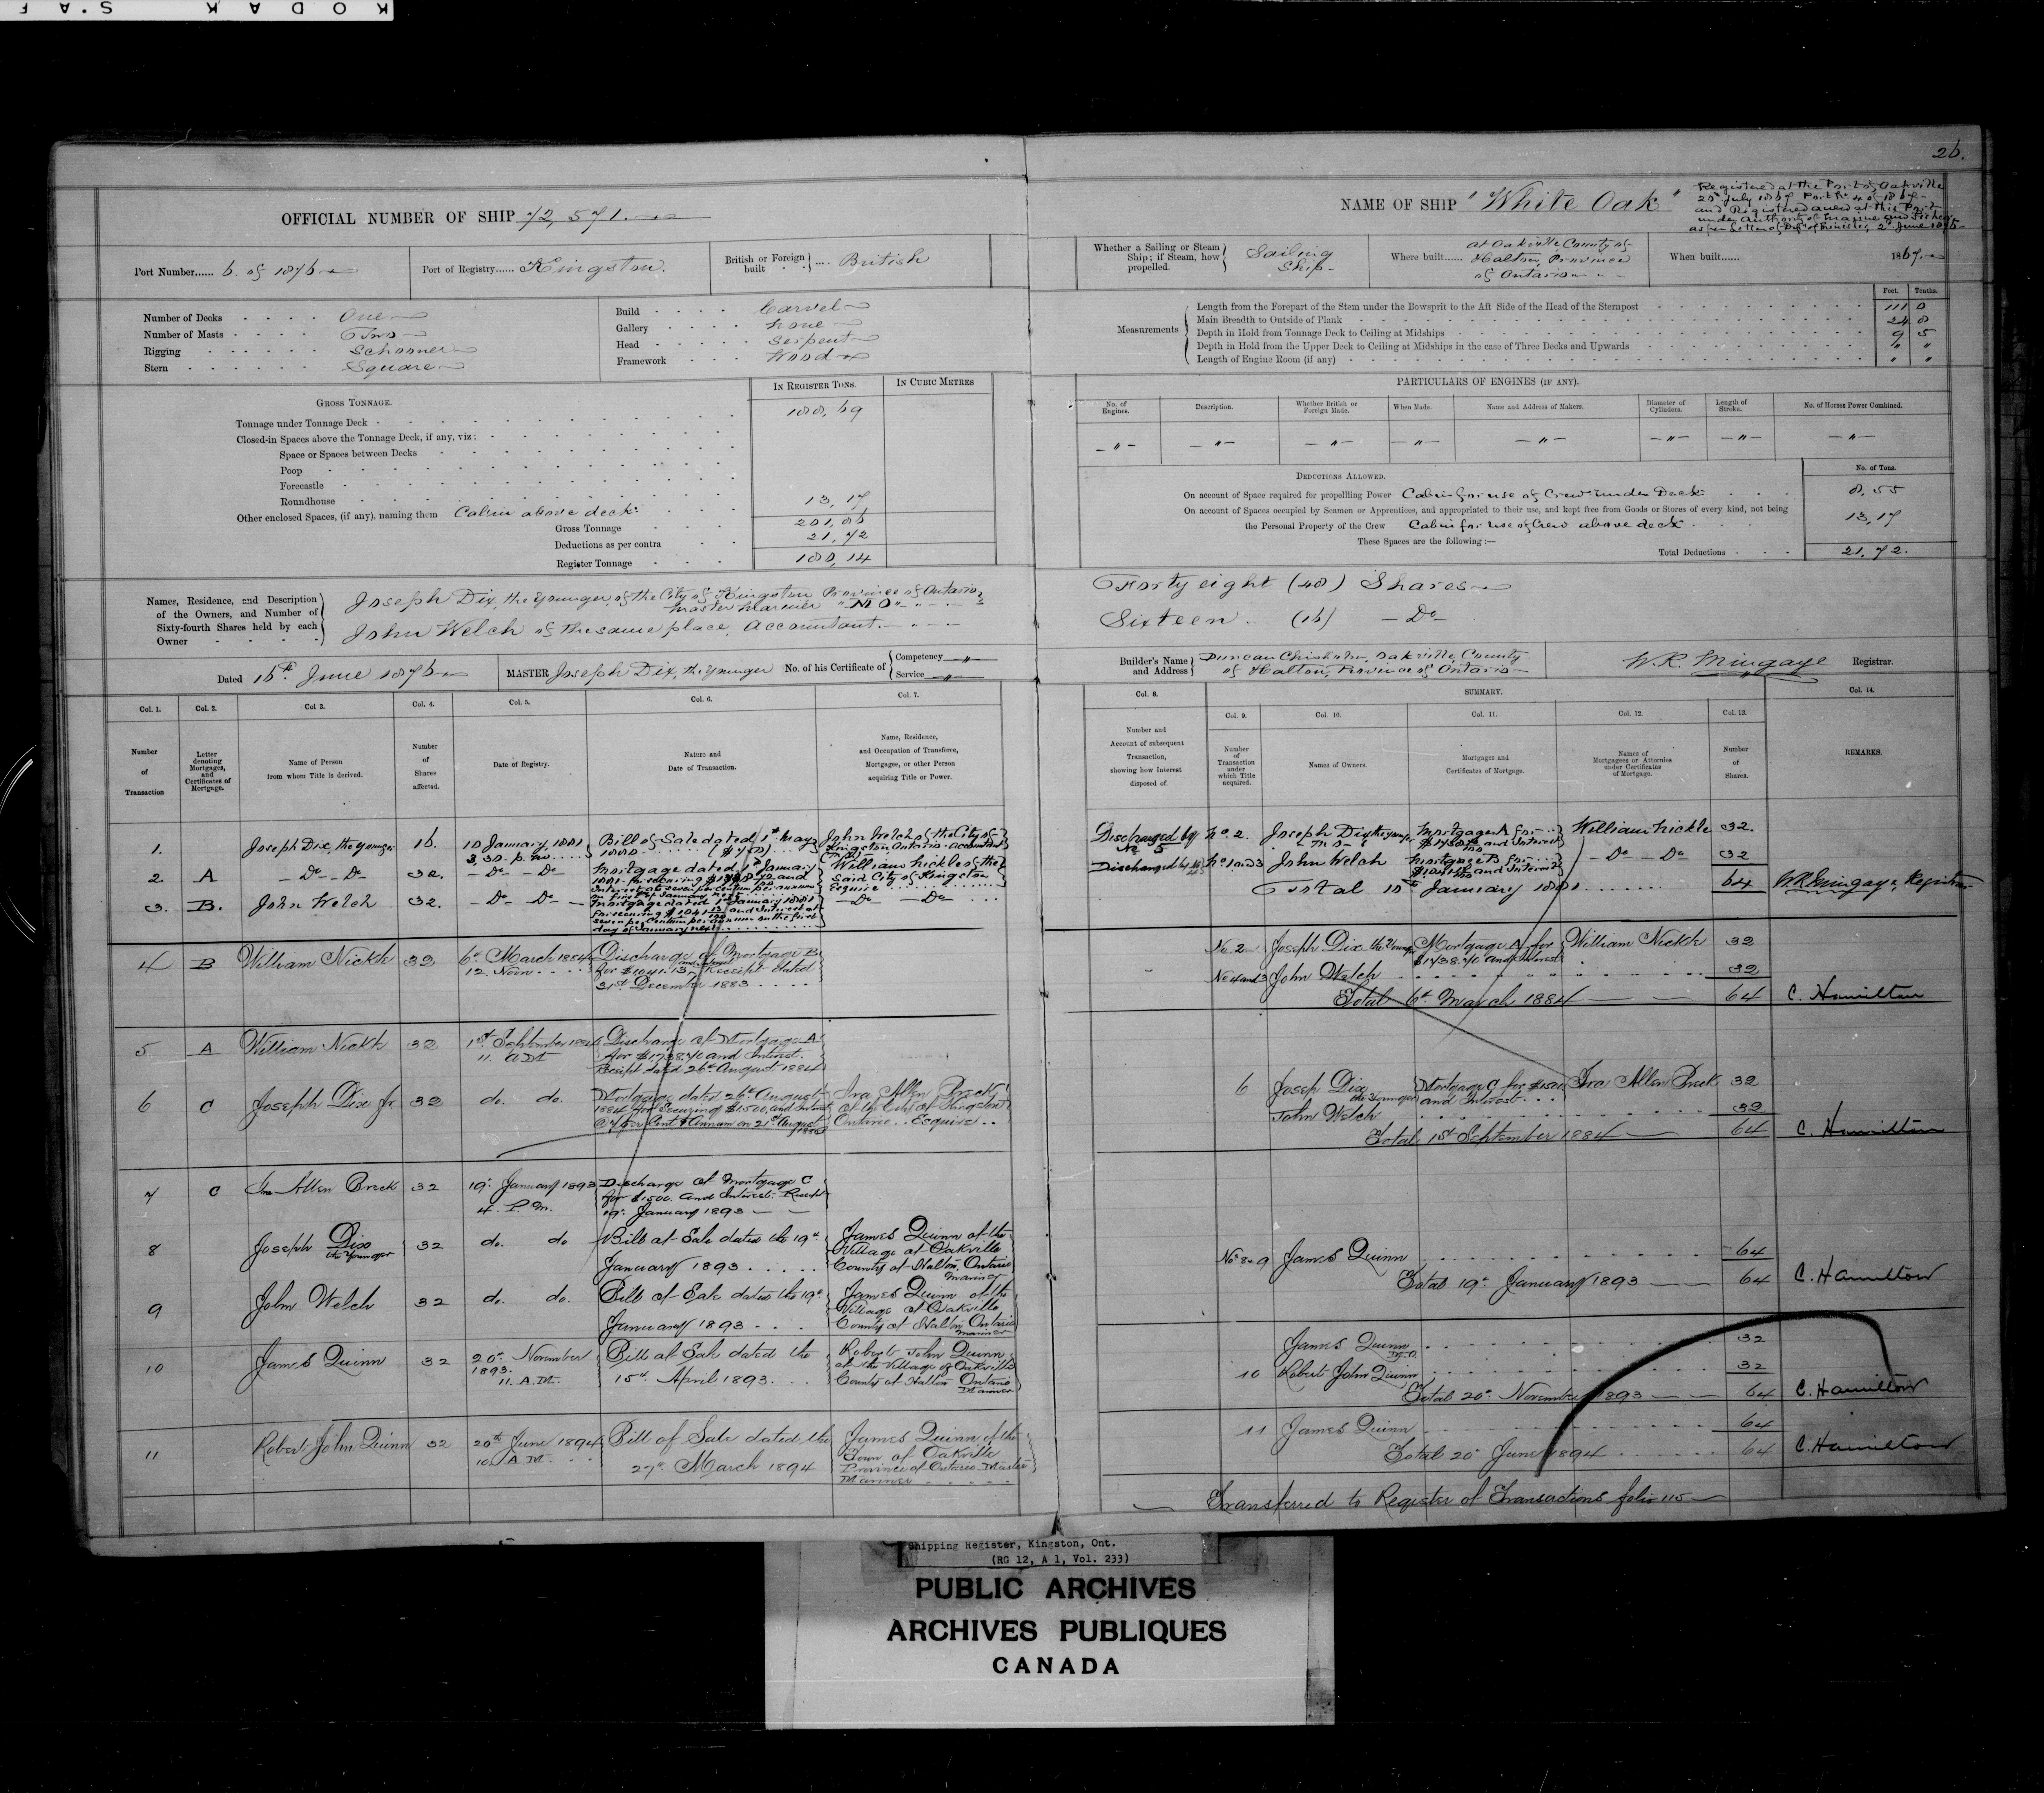 KODAK S.AF
26.
OFFICIAL NUMBER OF SHIP 72,571.
Port Number...... 6 of 1876
Port of Registry...... Kingston.
British or Foreign built .... British
Number of Decks One
Number of Masts Two
Rigging Schooner
Stern Square
Build Carvel
Gallery none
Head Serpent
Framework Wood
IN REGISTER TONS.
IN CUBIC METRES
GROSS TONNAGE.
Tonnage under Tonnage Deck 188,69
Closed-in Spaces above the Tonnage Deck, if any, viz:
Space or Spaces between Decks
Poop
Forecastle
Roundhouse
Other enclosed Spaces, (if any), naming them Cabin above deck 13,17
Gross Tonnage 201,86
Deductions as per contra 21,72
Register Tonnage 180,14
Names, Residence, and Description of the Owners, and Number of Sixty-fourth Shares held by each Owner
Joseph Dix, the younger, of the City of Kingston Province of Ontario
Master Mariner "M O"
John Welch of the same place, Accountant
Dated 16th June 1876
MASTER Joseph Dix, the younger
No. of his Certificate of Competency Service
NAME OF SHIP "White Oak"
Registered at the Port of Oakville
July 1867 Port No 4 of 1867
and Registered anew at this Port
under authority of Marine and Fishery
as per letter of Dep. of Minister, 2d June 1876
Whether a Sailing or Steam Ship; if Steam, how propelled. Sailing Ship
Where built...... at Oakville, County of Halton, Province of Ontario
When built...... 1867
Measurements
Feet. Tenths.
Length from the Forepart of the Stem under the Bowsprit to the Aft Side of the Head of the Sternpost 111 0
Main Breadth to Outside of Plank 24 8
Depth in Hold from Tonnage Deck to Ceiling at Midships 9 5
Depth in Hold from the Upper Deck to Ceiling at Midships in the case of Three Decks and Upwards " "
Length of Engine Room (if any) " "
PARTICULARS OF ENGINES (IF ANY).
No. of Engines.
Description.
Whether British or Foreign Made.
When Made.
Name and Address of Makers.
Diameter of Cylinders.
Length of Stroke.
No. of Horses Power Combined.
DEDUCTIONS ALLOWED.
No. of Tons.
On account of Space required for propelling Power Cabin for use of Crew under Deck 8,55
On account of Spaces occupied by Seamen or Apprentices, and appropriated to their use, and kept free from Goods or Stores of every kind, not being
the Personal Property of the Crew Cabin for use of Crew above deck 13,17
These Spaces are the following:—
Total Deductions 21,72.
Forty eight (48) Shares
Sixteen (16) Do
Builder's Name and Address Duncan Chisholm, Oakville, County of Halton, Province of Ontario
W.R. Mingaye Registrar.
Col. 1. Number of Transaction
Col. 2. Letter denoting Mortgages, and Certificates of Mortgage.
Col 3. Name of Person from whom Title is derived.
Col. 4. Number of Shares affected.
Col. 5. Date of Registry.
Col. 6. Nature and Date of Transaction.
Col. 7. Name, Residence, and Occupation of Transferee, Mortgagee, or other Person acquiring Title or Power.
Col. 8. Number and Account of subsequent Transaction, showing how Interest disposed of.
SUMMARY.
Col. 9. Number of Transaction under which Title acquired.
Col. 10. Names of Owners.
Col. 11. Mortgages and Certificates of Mortgage.
Col. 12. Names of Mortgagees or Attornies under Certificates of Mortgage.
Col. 13. Number of Shares.
Col. 14. REMARKS.
1. Joseph Dix, the younger 16. 18 January, 1881 3,30 p.m. Bill of Sale dated 1st May 1880 John Welch of the City of Kingston, Ontario, accountant
2. A Do Do 32. Do Do Mortgage dated January 1881 for securing and Interest at seven per centum per annum William Nickle of the said City of Kingston Esquire
3. B. John Welch 32. Do Do Mortgage dated 1st January 1881 for securing $1041 13/100 and Interest at seven per centum per annum on the first day of January next Do Do
4 B William Nickle 32 6th March 1884 12. Noon Discharge of Mortgage B for $1041.13 and Interest Receipt dated 31st December 1883
5 A William Nickle 32 1st September 1884 11. A.M. Discharge of Mortgage A for $1738.70 and Interest. Receipt dated 26th August 1884
6 C Joseph Dix Jr. 32 do. do. Mortgage dated 26th August 1884 for Securing $1500, and Interest @ 7 per Cent Annum on 21st August Ira Allen Breck of the City of Kingston Ontario Esquire
7 C Ira Allen Breck 32 19th January 1893 4. P.M. Discharge of Mortgage C for $1500 and Interest Receipt 19th January 1893
8 Joseph Dix the Younger 32 do. do Bill of Sale dated the 19th January 1893 James Quinn of the Village of Oakville County of Halton, Ontario Mariner
9 John Welch 32 do. do. Bill of Sale dated the 19th January 1893 James Quinn of the Village of Oakville County of Halton Ontario Mariner
10 James Quinn 32 20th November 1893. 11. A.M. Bill of Sale dated the 15th April 1893. Robert John Quinn of the Village of Oakville County of Halton Ontario Mariner
11 Robert John Quinn 32 20th June 1894 10. A.M. Bill of Sale dated the 27th March 1894 James Quinn of the Town of Oakville Province of Ontario Master Mariner
Discharged by No 5 No. 2. Joseph Dix the younger "M O" Mortgage A for and Interest William Nickle 32.
Discharged by No 4 No 1 and 3 John Welch Mortgage B for and Interest Do Do 32
Total 18th January 1881 64 W.R. Mingaye, Registrar
No 2 Joseph Dix the Younger Mortgage A for $1738.70 and Interest William Nickle 32
No 1 and 3 John Welch 32
Total 6th March 1884 64 C. Hamilton
6 Joseph Dix the Younger Mortgage C for $1500 and Interest Ira Allen Breck 32
John Welch 32
Total 1st September 1884 64 C. Hamilton
No 8 & 9 James Quinn 64
Total 19th January 1893 64 C. Hamilton
James Quinn M.O. 32
10 Robert John Quinn 32
Total 20th November 1893 64 C. Hamilton
11 James Quinn 64
Total 20th June 1894 64 C. Hamilton
Transferred to Register of Transactions folio 115
Shipping Register, Kingston, Ont.
(RG 12, A 1, Vol. 233)
PUBLIC ARCHIVES
ARCHIVES PUBLIQUES
CANADA